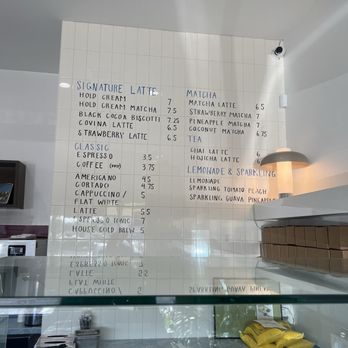 SIGNATURE LATTE
HOLD CREAM 7
HOLD CREAM MATCHA 7.5
BLACK COCOA BISCOTTI 7.25
COVINA LATTE 6.5
STRAWBERRY LATTE 6.5
CLASSIC
ESPRESSO 3.5
COFFEE 3.75
AMERICANO 4.5
CORTADO 4.75
CAPPUCCINO/ 5
FLAT WHITE
LATTE 5.5
ESPRESSO TONIC 7
HOUSE COLD BREW 5
MATCHA
MATCHA LATTE 6.5
STRAWBERRY MATCHA 7
PINEAPPLE MATCHA 7
COCONUT MATCHA 6.75
TEA
CHAI LATTE 6
HOJICHA LATTE 6.5
LEMONADE & SPARKLING
LEMONADE
SPARKLING TOMATO PEACH
SPARKLING GUAVA PINEAPPLE